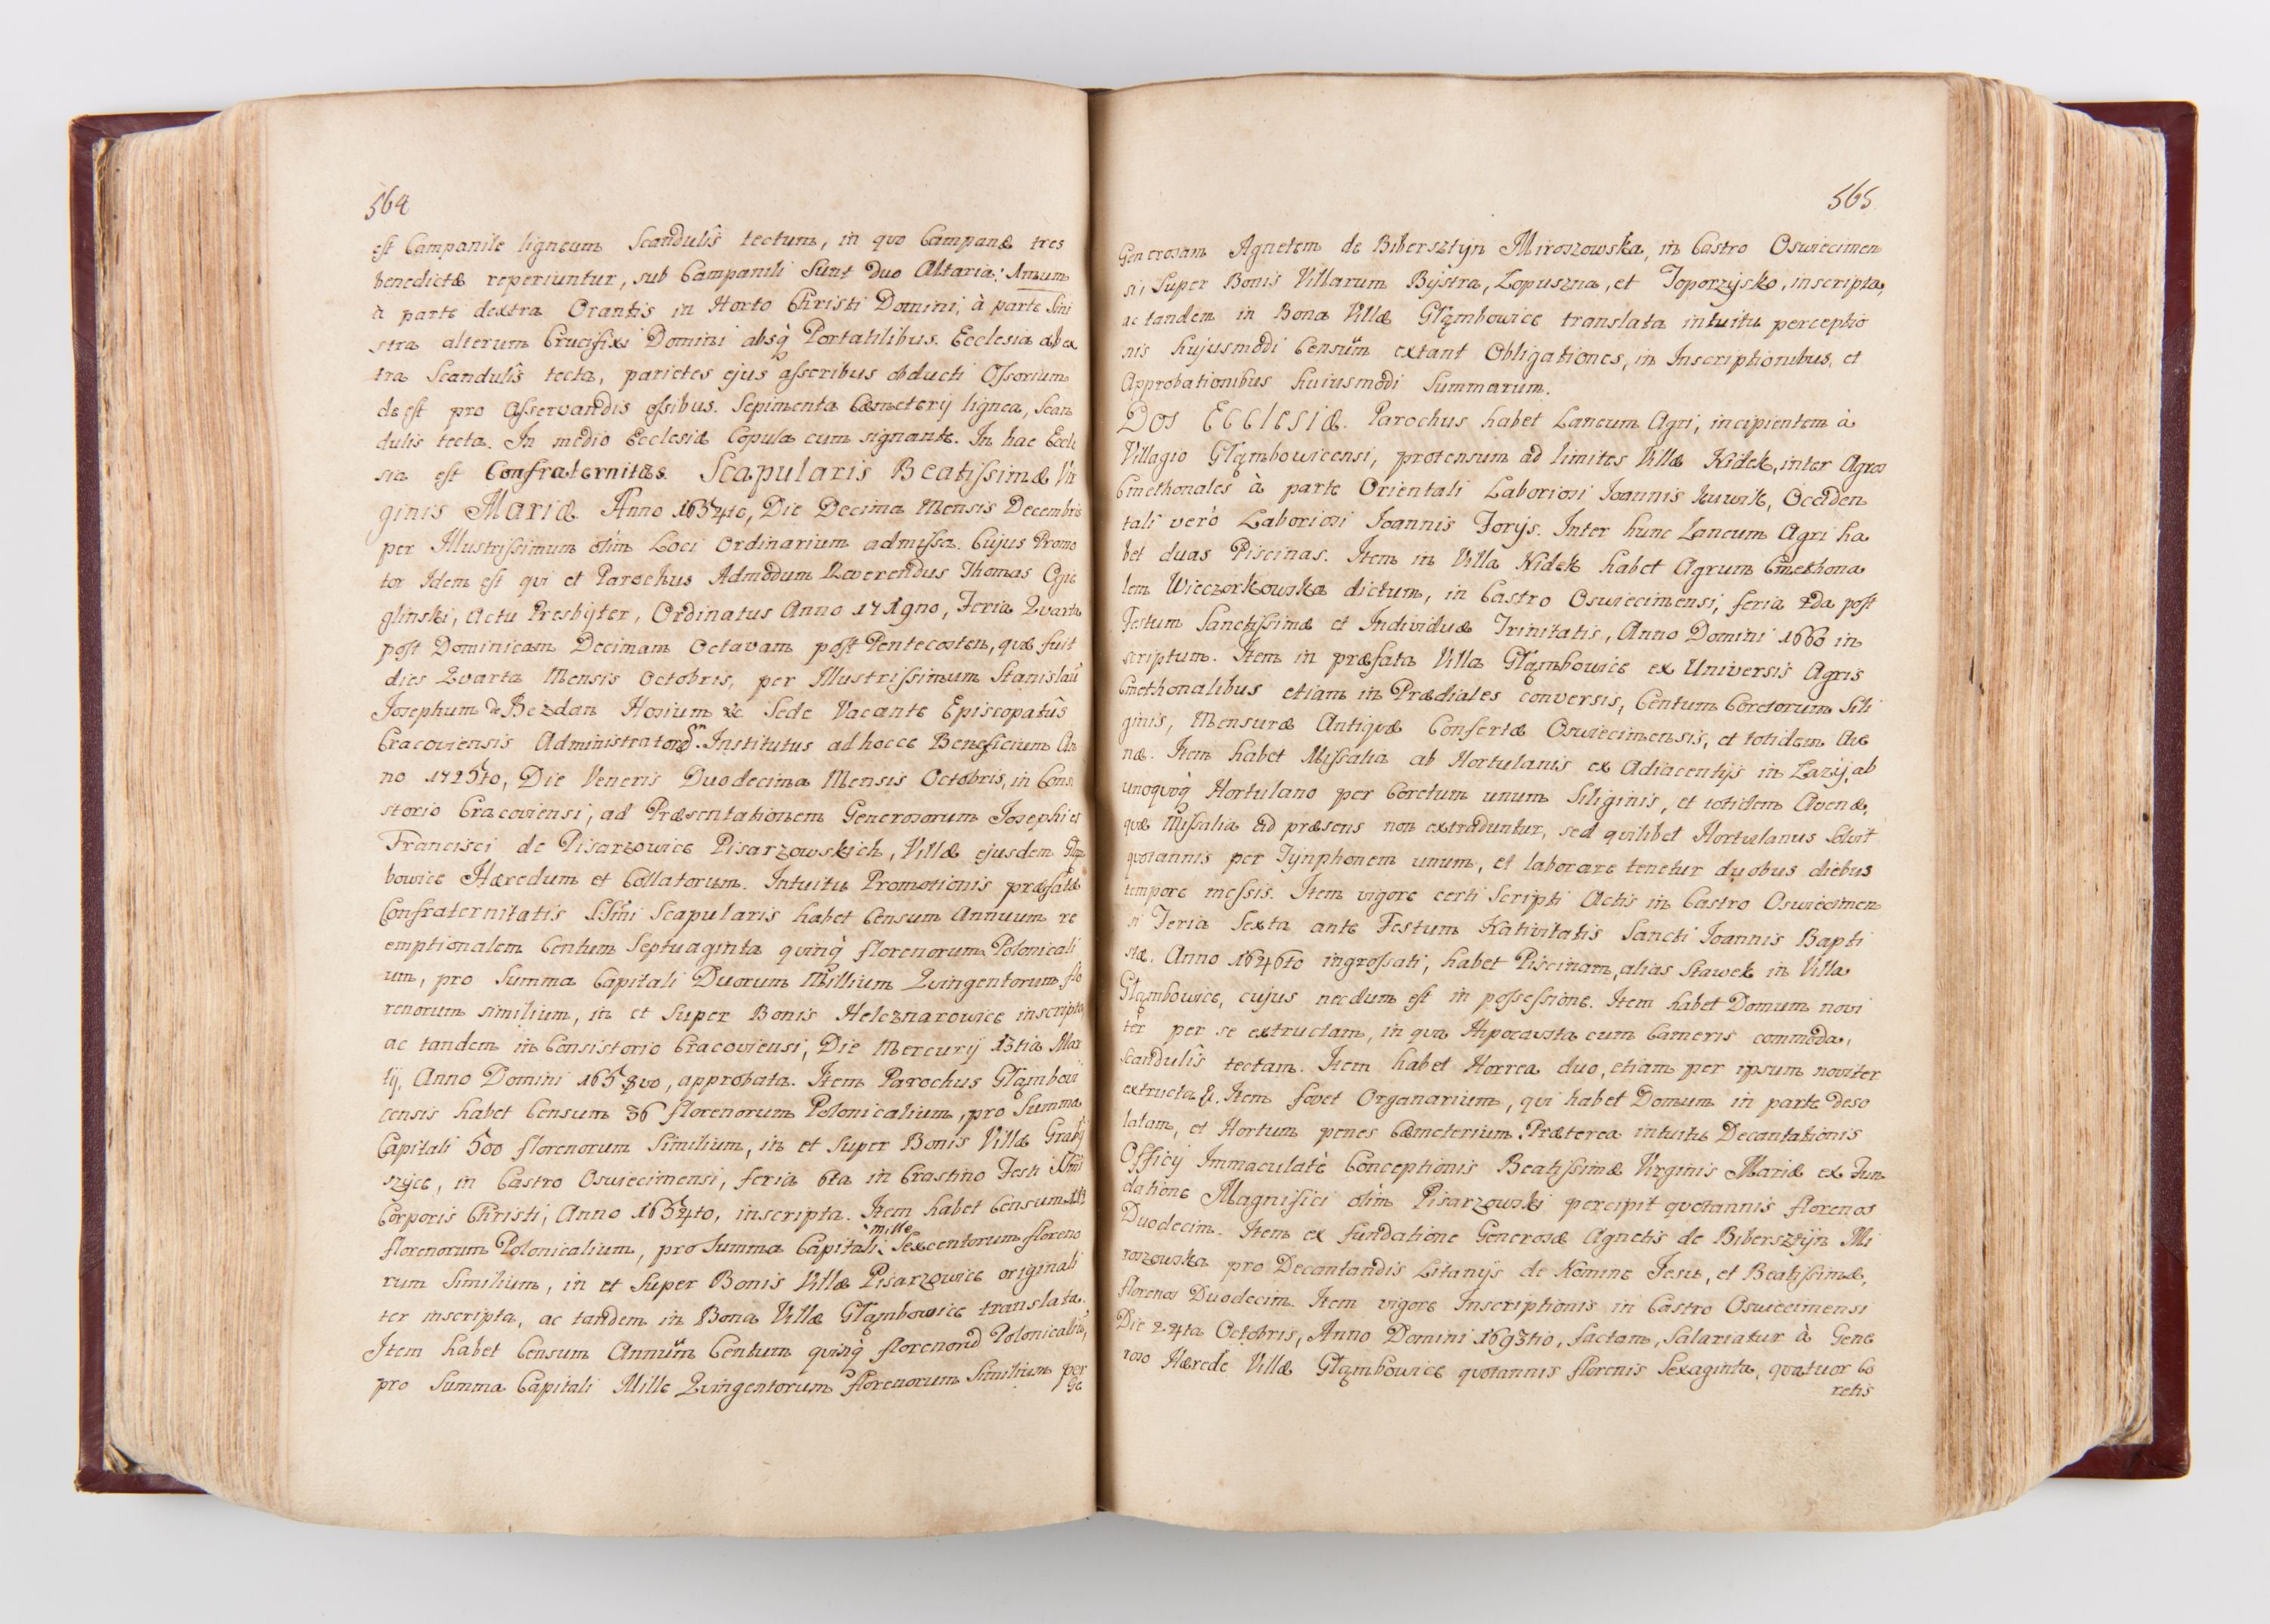 564
est Campanile ligneum Scandulis tectum, in quo Campanæ tres
benedictæ reperiuntur, sub Campanili sunt duo Altaria: Unum
à parte dextra Orantis in Horto Christi Domini, à parte Sini
stra alterum Crucifixi Domini absq̀ Portatilibus. Ecclesia ab ex
tra Scandulis tecta, parietes ejus asseribus obducti Ossorium
deest pro asservandis ossibus. Sepimenta Cæmeterij lignea, Scan
dulis tecta. In medio Ecclesiæ Copula cum signante. In hac Eccle
sia est Confraternitas Scapularis Beatissimæ Vir
ginis Mariæ Anno 1634to, Die Decima Mensis Decembris
per Illustrissimum olim Loci Ordinarium admissa. Cujus Promo
tor Idem est qui et Parochus Admodum Reverendus Thomas
glinski, actu Presbyter, Ordinatus Anno 1719no, Feria Quarta
post Dominicam Decimam Octavam post Pentecosten, quæ fuit
dies Quarta Mensis Octobris, per Illustrissimum Stanislaũ
Josephum de Bezdan Hosium &c Sede Vacante Episcopatûs
Cracoviensis Administratorem. Institutus ad hocce Beneficium An
no 1725to, Die Veneris Duodecima Mensis Octobris, in Consi
storio Cracoviensi, ad Præsentationem Generosorum Josephi et
Francisci de Pisarzowice Pisarzowskich, Villæ ejusdem Głę
bowice Hæredum et Collatorum. Intuitu Promotionis præfatæ
Confraternitatis SSmi Scapularis habet Censum Annuum re
emptionalem Centum Septuaginta quinq̀ florenorum Polonicali
um, pro Summa Capitali Duorum Millium Quingentorum flo
renorum similium, in et super Bonis Helcznarowice inscripta
ac tandem in Consistorio Cracoviensi, Die Mercurij 13tia Mar
tij, Anno Domini 1658vo, approbata. Item Parochus Głambovi
censis habet Censum 36 florenorum Polonicalium, pro Summa
Capitali 500 florenorum Similium, in et super Bonis Villæ Graby
szyce, in Castro Oswiecimensi, feria 6ta in Crastino Festi SSmi
Corporis Christi, Anno 1634to, inscripta. Item habet Censum 113
florenorum Polonicalium, pro Summa Capitali mille Sexcentorum floreno
rum Similium, in et super Bonis Villæ Pisarzowice originali
ter inscripta, ac tandem in Bona Villæ Głambowice translata.
Item habet Censum Annuũm Centum quinq̀ florenorũ Polonicaliũ,
pro Summa Capitali Mille Quingentorum florenorum Similium per
Ge
565
Generosam Agnetem de Bibersztyn Miroszowska, in Castro Oswiecimen
si, super Bonis Villarum Bystra, Lopuszna, et Toporzysko, inscripta,
ac tandem in Bona Villæ Głambowice translata intuitu perceptio
nis hujusmodi Censuũm extant Obligationes, in Inscriptionibus, et
Approbationibus huiusmodi Summarum.
DOS ECClESIÆ. Parochus habet Laneum Agri, incipientem à
Villagio Głambowicensi, protensum ad limites Villæ Nidek, inter Agros
Cmethonales à parte Orientali Laboriosi Joannis , Occiden
tali verò Laboriosi Joannis Foryś. Inter hunc Laneum Agri ha
bet duas Piscinas. Item in Villa Nidek habet Agrum Cmethona
lem Wieczorkowska dictum, in Castro Oswiecimensi, feria 2da post
Festum Sanctissimæ et Individuæ Trinitatis, Anno Domini 1660 in
scriptum. Item in præfata Villa Głambowice ex Universis Agris
Cmethonalibus etiam in Prædiales conversis, Centum Coretorum Sili
ginis, Mensuræ Antiquæ Confertæ Oswiecimensis, et totidem Ave
næ. Item habet Missalia ab Hortulanis ex Adiacentijs in Lazy, ab
unoquoq̀ Hortulano per Coretum unum Siliginis, et totidem Avenæ,
quæ Missalia ad præsens non extraduntur, sed quilibet Hortulanus Solvit
quotannis per Tynphonem unum, et laborare tenetur duobus diebus
tempore messis. Item vigore certi Scripti Actis in Castro Oswiecimen
si Feria Sexta ante Festum Nativitatis Sancti Joannis Bapti
stæ. Anno 1646to ingrossati, habet Piscinam, alias Stawek in Villa
Głambowice, cujus necdum est in possessione. Item habet Domum novi
ter per se extructam, in qua Hipocausta cum Cameris commoda,
Scandulis tectam. Item habet Horrea duo, etiam per ipsum noviter
extructa &. Item fovet Organarium, qui habet Domum in parte deso
latam, et Hortum penes Cæmeterium. Præterea intuitu Decantationis
Officij Immaculatè Conceptionis Beatissimæ Virginis Mariæ ex Fun
datione Magnifici olim Pisarzowski percipit quotannis florenos
Duodecim. Item ex fundatione Generosæ Agnetis de Bibersztyn Mi
roszowska pro Decantandis Litanijs de Nomine Jesu, et Beatissimæ,
florenos Duodecim. Item vigore Inscriptionis in Castro Oswiecimensi
Die 24ta Octobris, Anno Domini 1693tio, factam, Salariatur à Gene
roso Hærede Villæ Głambowice quotannis florenis Sexaginta, quatuor Co
retis